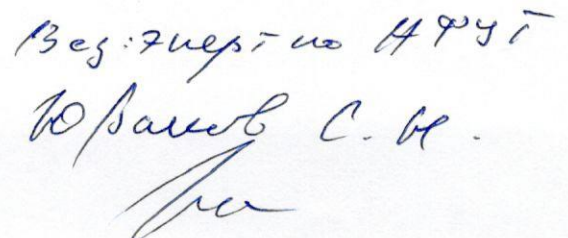 Вед. эксперт по НФУТ
Юваков С. Н.